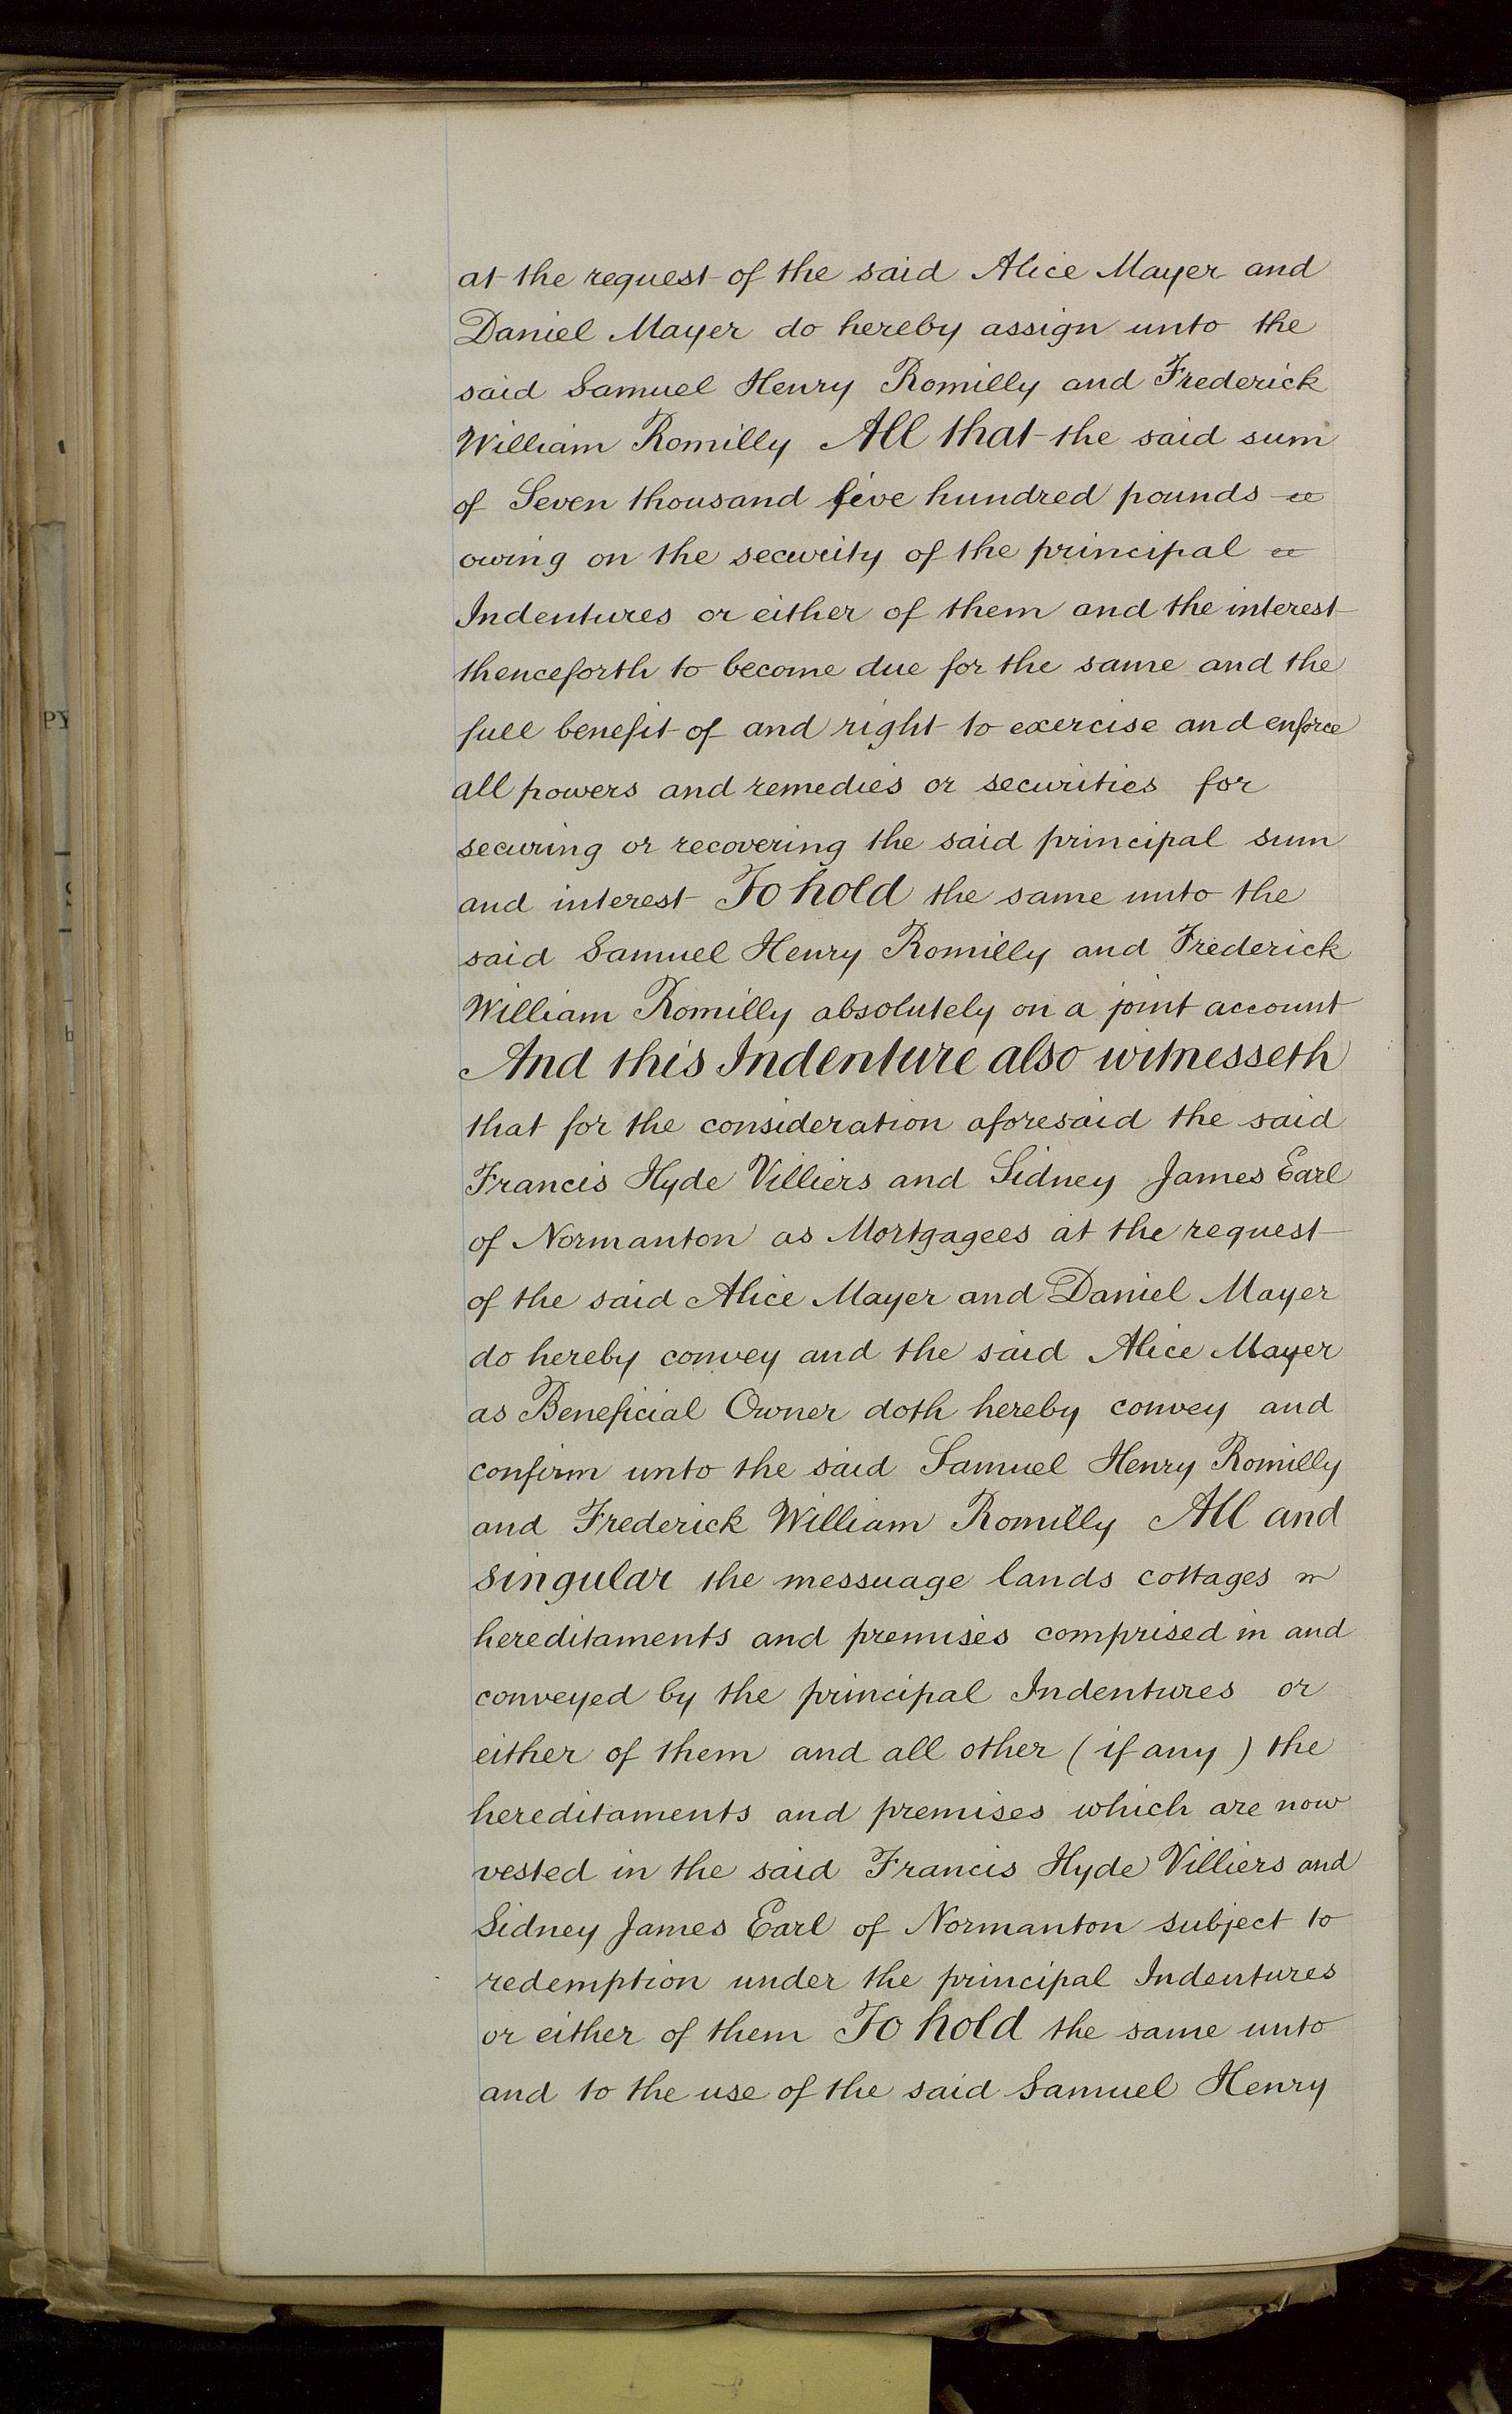 at the request of the said Alice Mayer and
Daniel Mayer do hereby assign unto the
said Samuel Henry Romilly and Frederick
William Romilly All that the said sum
of Seven thousand five hundred pounds
owing on the security of the principal
Indentures or either of them and the interest
thenceforth to become due for the same and the
full benefit of and right to exercise and enforce
all powers and remedies or securities for
securing or recovering the said principal sum
and interest To hold the same unto the
said Samuel Henry Romilly and Frederick
William Romilly absolutely on a joint account
And this Indenture also witnesseth
that for the consideration aforesaid the said
Francis Hyde Villiers and Sidney James Earl
of Normanton as Mortgagees at the request
of the said Alice Mayer and Daniel Mayer
do hereby convey and the said Alice Mayer
as Beneficial Owner doth hereby convey and
confirm unto the said Samuel Henry Romilly
and Frederick William Romilly All and
singular the messuage lands cottages
hereditaments and premises comprised in and
conveyed by the principal Indentures or
either of them and all other (if any) the
hereditaments and premises which are now
vested in the said Francis Hyde Villiers and
Sidney James Earl of Normanton subject to
redemption under the principal Indentures
or either of them To hold the same unto
and to the use of the said Samuel Henry